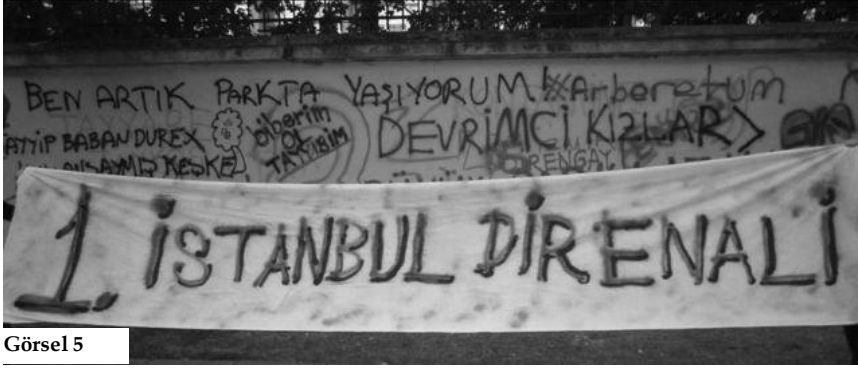 BEN ARTIK PARKTA YAŞIYORUM! Arboretum
TAYYİP BABAN DUREX
biberim
OL
TAYYİBİM
DEVRİMCİ KIZLAR>
KEŞKE
RENGAY
1. İSTANBUL DİRENALİ
Görsel 5